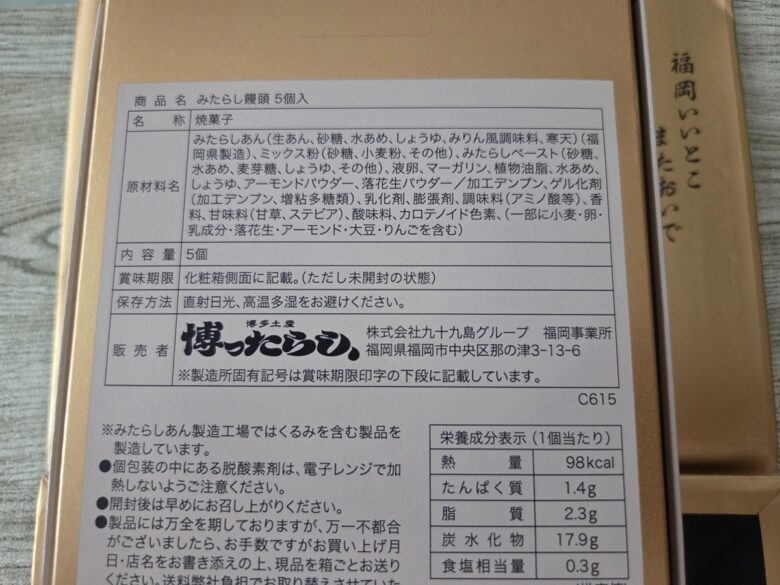 商品名 みたらし饅頭 5個入
名称 焼菓子
原材料名 みたらしあん(生あん、砂糖、水あめ、しょうゆ、みりん風調味料、寒天)(福
岡県製造)、ミックス粉(砂糖、小麦粉、その他)、みたらしペースト(砂糖、
水あめ、麦芽糖、しょうゆ、その他)、液卵、マーガリン、植物油脂、水あめ、
しょうゆ、アーモンドパウダー、落花生パウダー/加工デンプン、ゲル化剤
(加工デンプン、増粘多糖類)、乳化剤、膨張剤、調味料(アミノ酸等)、香
料、甘味料(甘草、ステビア)、酸味料、カロテノイド色素、(一部に小麦・卵・
乳成分・落花生・アーモンド・大豆・りんごを含む)
内容量 5個
賞味期限 化粧箱側面に記載。(ただし未開封の状態)
保存方法 直射日光、高温多湿をお避けください。
販売者 博多土産
博ったらし、
株式会社九十九島グループ 福岡事業所
福岡県福岡市中央区那の津3-13-6
※製造所固有記号は賞味期限印字の下段に記載しています。
C615
※みたらしあん製造工場ではくるみを含む製品を
製造しています。
●個包装の中にある脱酸素剤は、電子レンジで加
熱しないようご注意ください。
●開封後は早めにお召し上がりください。
●製品には万全を期しておりますが、万一不都合
がございましたら、お手数ですがお買い上げ月
日・店名をお書き添えの上、現品を箱ごとお送り
ください。送料弊社負担でお取り替えさせていた
栄養成分表示(1個当たり)
熱量 98kcal
たんぱく質 1.4g
脂質 2.3g
炭水化物 17.9g
食塩相当量 0.3g
福岡いいとこ
またおいで